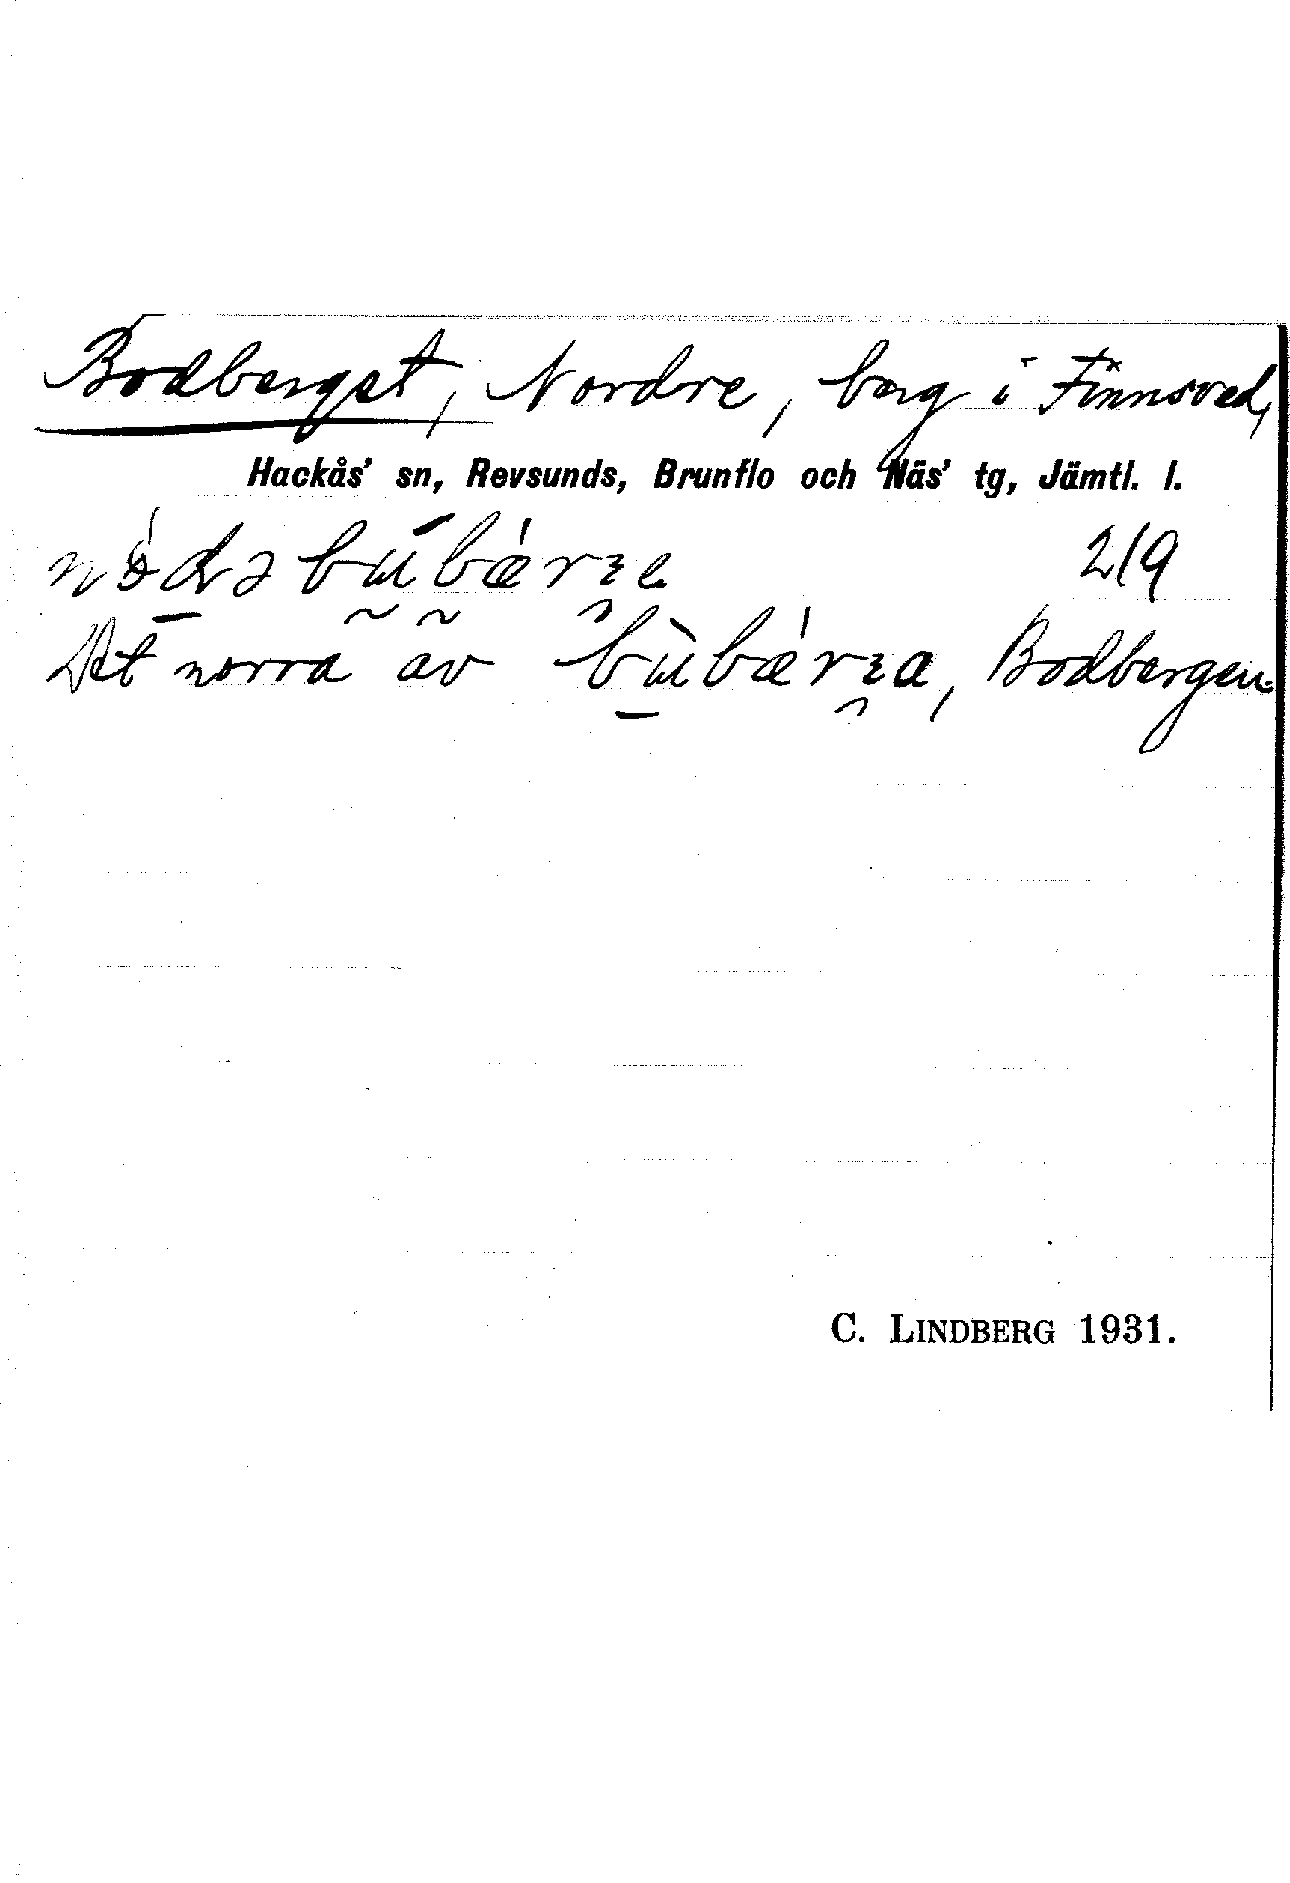 Bodberget, Nordre, berg i Finnsved,
Hackås' sn, Revsunds, Brunflo och Näs' tg, Jämtl. l.
219
Det norra av bùbǽrȝa, Bodbergen.
C. LINDBERG 1931.